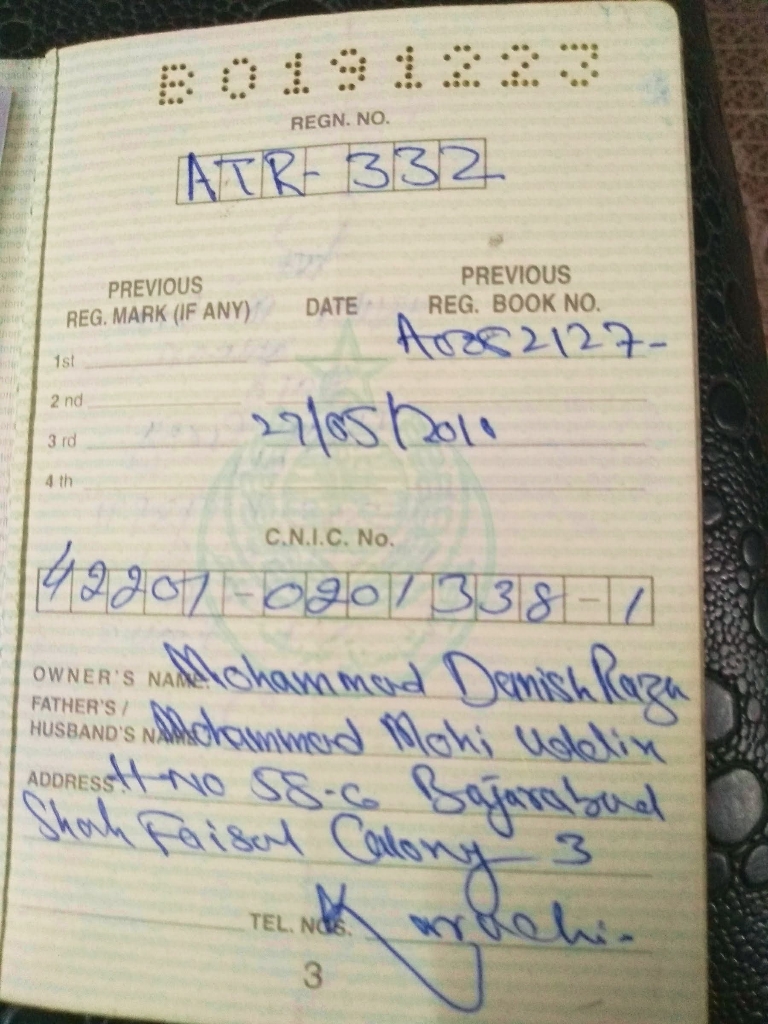 B0191223
REGN. NO.
ATR-332
PREVIOUS REG. MARK (IF ANY) DATE PREVIOUS REG. BOOK NO.
1st
2nd
27/05/2010
3rd
4th
C.N.I.C. No.
42201-0201338-1
OWNER'S NAME: Mohammad Danish Raza
FATHER'S /
HUSBAND'S NAME Mohammad Mohi Uddin
ADDRESS: H-No 58-G
Shah Faisal Colony 3
TEL. NOS. Karachi-
3